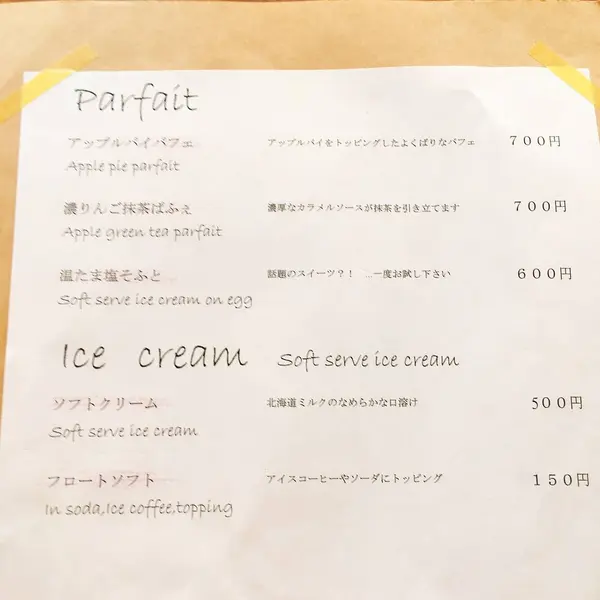 Parfait
アップルパイパフェ アップルパイをトッピングしたよくばりなパフェ ７００円
Apple pie parfait
濃りんご抹茶ぱふぇ 濃厚なカラメルソースが抹茶を引き立てます ７００円
Apple green tea parfait
温たま塩そふと 話題のスイーツ？！ …一度お試し下さい ６００円
Soft serve ice cream on egg
Ice cream Soft serve ice cream
ソフトクリーム 北海道ミルクのなめらかな口溶け ５００円
Soft serve ice cream
フロートソフト アイスコーヒーやソーダにトッピング １５０円
In soda,Ice coffee,topping